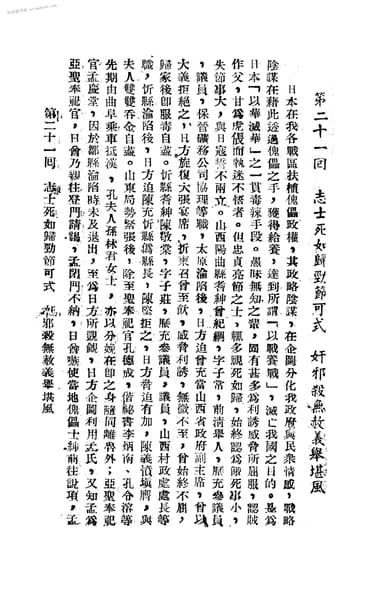 第二十一回　志士死如歸勁節可式　奸邪殺無赦義舉堪風
日本在我各戰區扶植傀儡政權，其政略陰謀，在企圖分化我政府與民衆情感，戰略
陰謀在藉此透過傀儡之手，獲得給養，達到所謂「以戰養戰」，滅亡我國之目的。是爲
日本「以華滅華」之一貫毒辣手段。愚昧無知之輩，固有甚多爲利誘威脅所屈服，認賊
作父，甘爲虎倀而執迷不悟者。但忠貞亮節之士，輒多視死如歸，始終認爲餓死事小，
失節事大，與日寇誓不兩立。山西陽曲縣耆紳曾紀綱，字子常，前清舉人，歷充參議員
，議員，保晉礦務公司協理等職，太原淪陷後，日方迫曾充當山西省政府副主席，曾以
大義拒絕之，日方旋復大張宴席，折柬召曾至飲，威脅利誘，無微不至，曾始終不屈，
歸家後卽服毒自盡。忻縣耆紳陳敬棠，字子莊，歷充參議員，議員，山西村政處處長等
職，忻縣淪陷後，日方迫陳充忻縣僞縣長，陳堅拒之，日方脅迫有加，陳義憤塡膺，與
夫人雙雙吞金自盡。山東局勢緊張後，除至聖奉祀官孔德成，偕秘書李炳南、孔令濬等
先期由曲阜乘車抵漢，孔夫人孫林君女士，亦以分娩在卽之身隨同離魯外；亞聖奉祀
官孟慶棠，因於鄒縣淪陷時未及退出，至爲日方所覬覦，日方企圖利用孟民，又知孟爲
亞聖奉祀官，日酋乃親往登門請謁，孟閉門不納，日酋嗾使當地傀儡士紳前往說項，孟
第二十一回　志士死如歸勁節可式　奸邪殺無赦義舉堪風